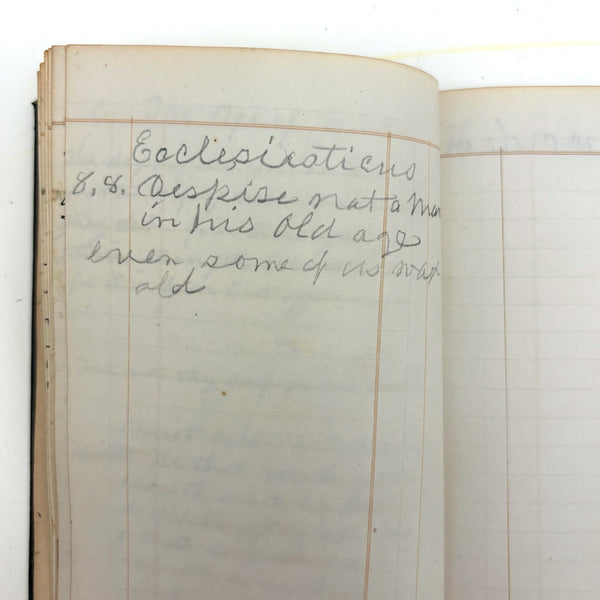 Ecclesiasticus
8, 8. Despise not a man
in his old age
even some of us wax
old